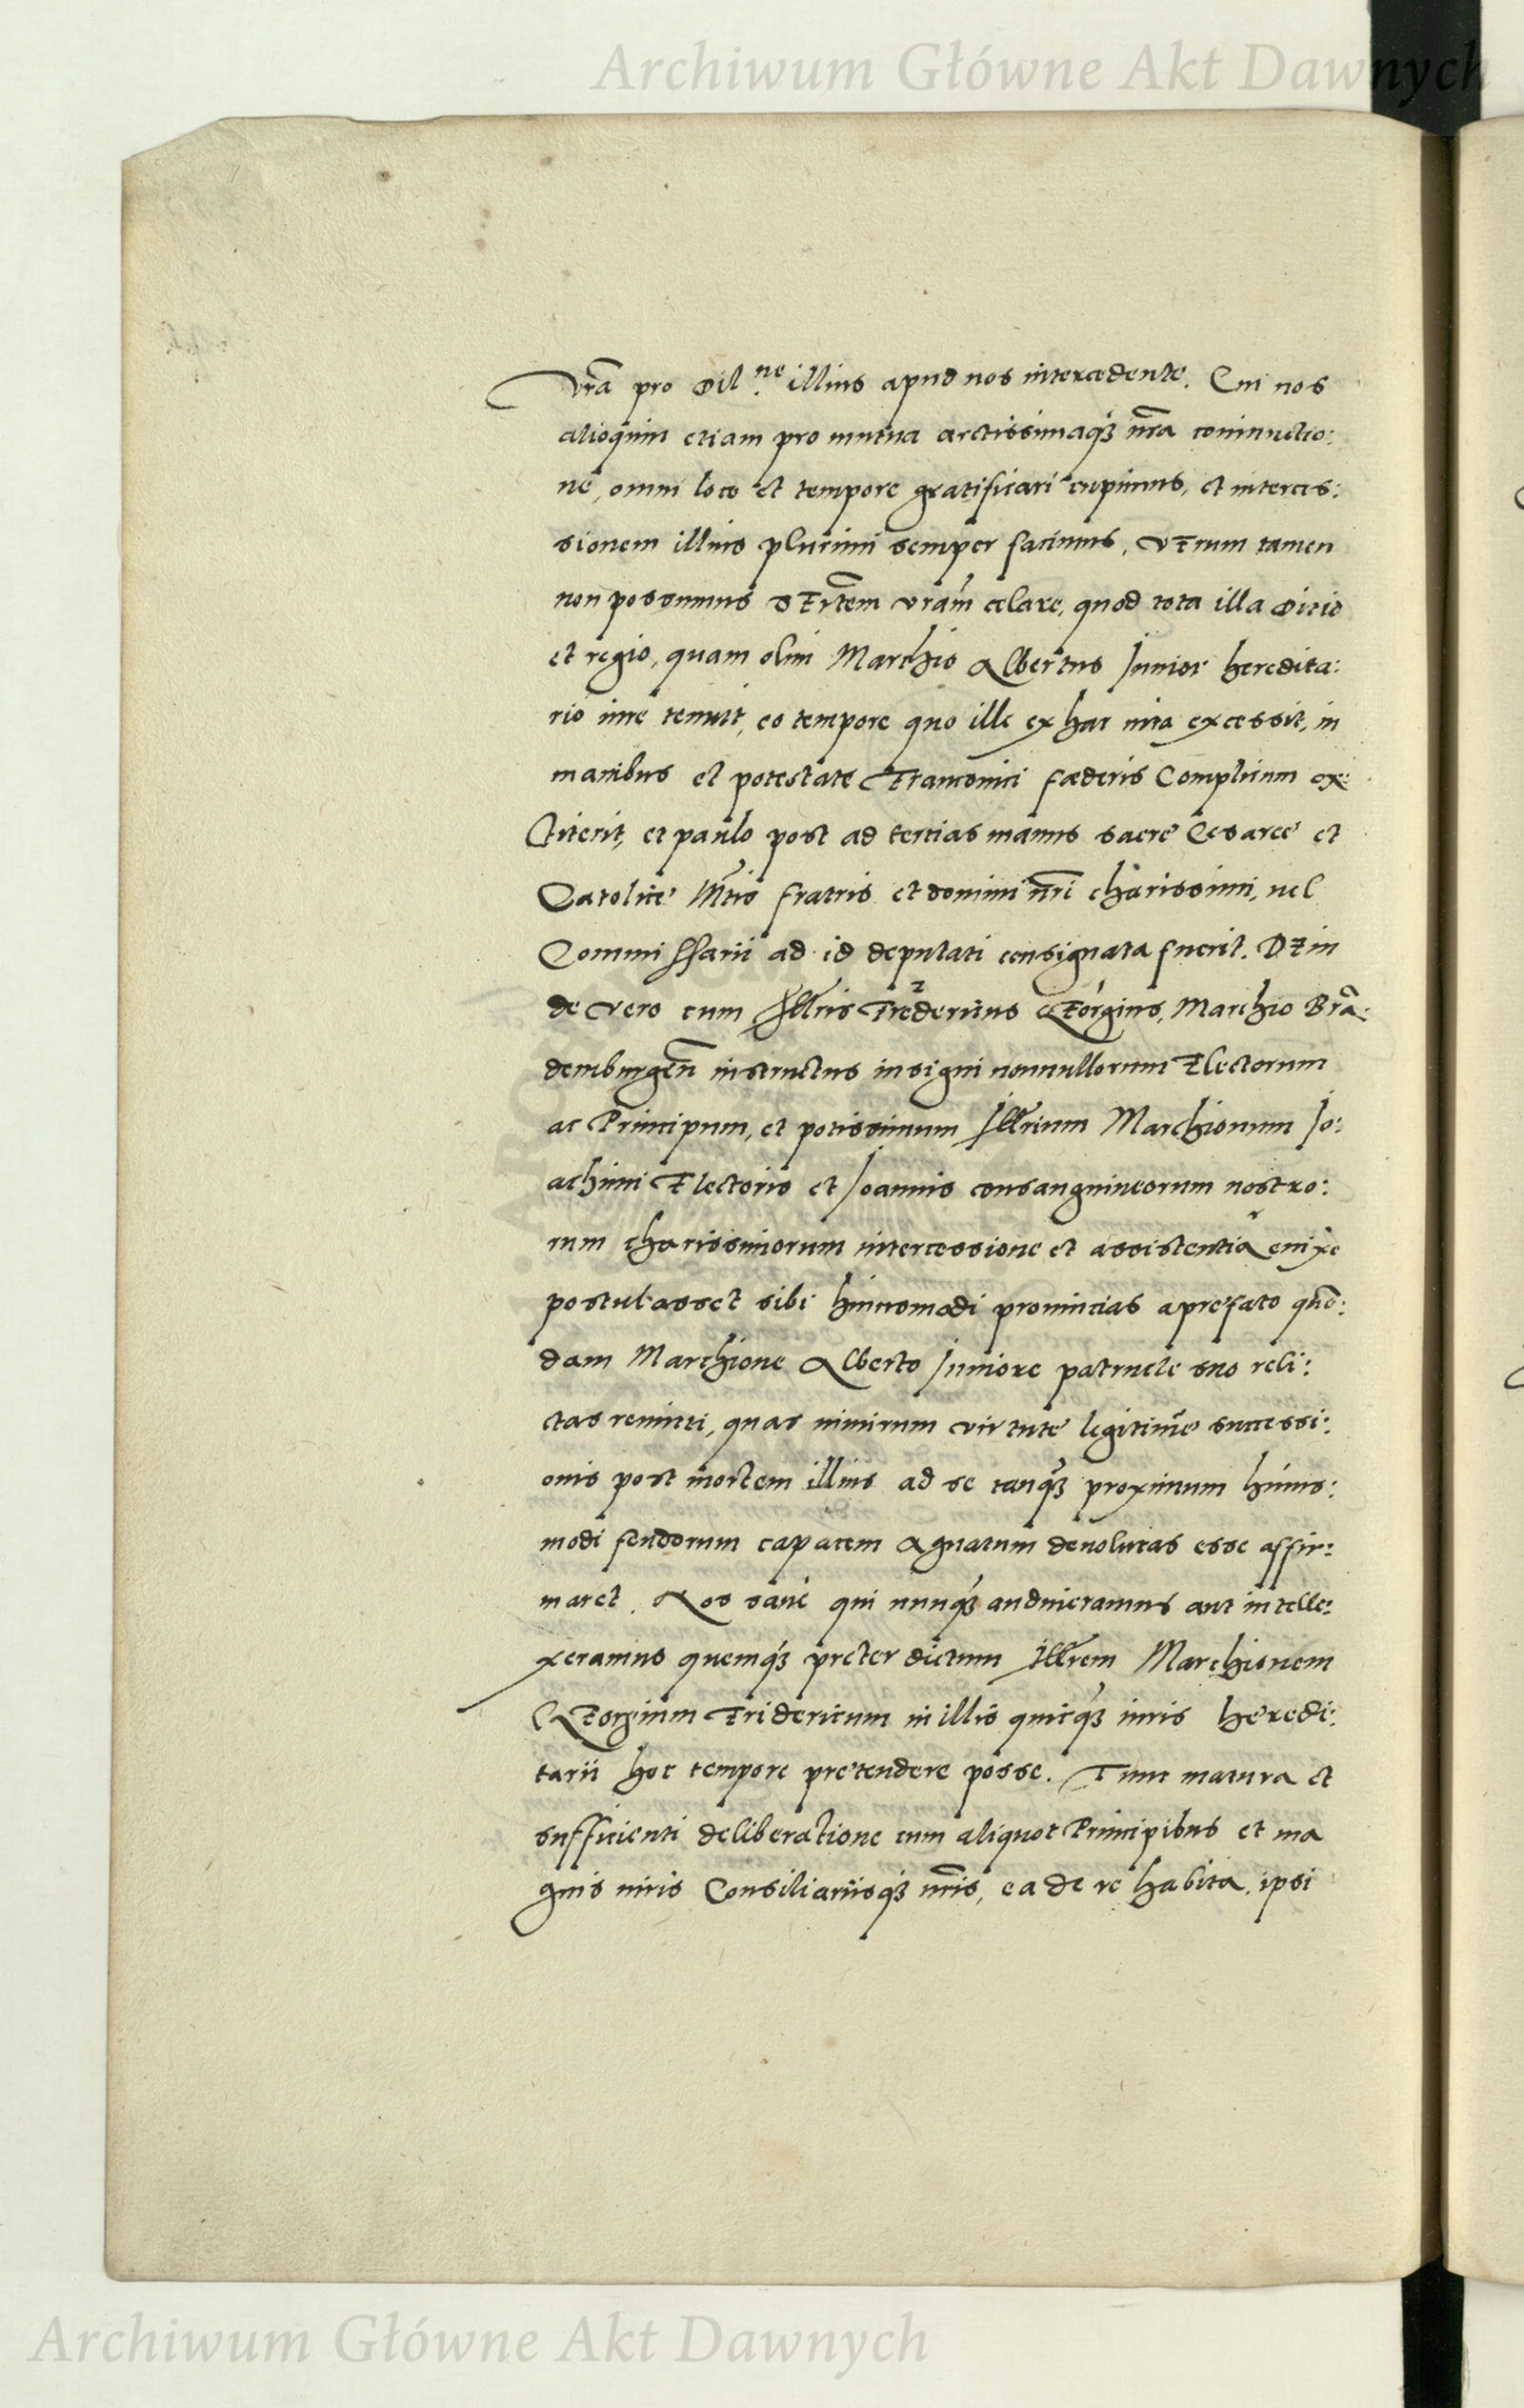 Archiwum Główne Akt Dawnych
vrã pro Dil.ne illius apud nos intercedente. Cui nos
alioquin etiam pro mutua arctissimaq3 nrã coniunctio:
ne, omni loco et tempore gratificari cupimus, et interces:
sionem illius plurimi semper facimus, verum tamen
non possumus Sertem vram celare, quod tota illa Ditio
et regio, quam olim Marchio Albertus Junior heredita:
rio iure tenuit, eo tempore quo ille ex hac uita excessit, in
manibus et potestate Franconici fœderis Complicum ex:
titerit, et paulo post ad tertias manus sacre Cesaree et
Catolice Mtis fratris et domini nri charissimi, uel
Commissarii ad id deputati consignata fuerit. Dein
de vero cum Illris Fredericus Georgius, Marchio Brã:
demburgeñ instructus insigni nonnullorum Electorum
ac Principum, et potissimum Illrium Marchionum Jo:
achimi Electoris et Joannis consanguineorum nostro:
rum charissimorum intercessione et assistentia enixe
postulasset sibi huiusmodi prouincias a prefato quõ:
dam Marchione Alberto Juniore patruele suo reli:
ctas remitti, quas nimirum virtute legitime successi:
onis post mortem illius ad se tanq3 proximum huius:
modi feudorum capacem Agnatum deuolutas esse affir:
maret. Nos sane qui nunq3 audiueramus aut intelle:
xeramus quemq3 preter dictum Illrem Marchionem
Georgium Fridericum in illis quicq3 iuris heredi:
tarii hoc tempore pretendere posse. Tum matura et
sufficienti deliberatione cum aliquot Principibus et ma
gnis uiris Consiliariisq3 nris, ea de re habita, ipsi
Archiwum Główne Akt Dawnych